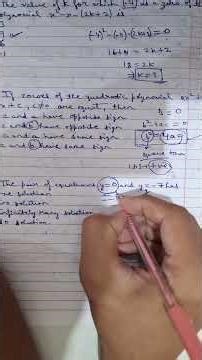 The value of k for which (-4) is a zero of the
polynomial x² - x - (2k+2) is
(-4)² - (-4) - (2k+2) = 0
16+4 = 2k+2
18 = 2k
k = 9
If zeroes of the quadratic polynomial ax²
x + c, c≠0 are equal, then
c and a have opposite sign
c and b have opposite sign
c and a have same sign
c and b have same sign
b² = 4ac
The pair of equations y=0 and y=-7 has
one solution
no solution
infinitely many solution
no solution